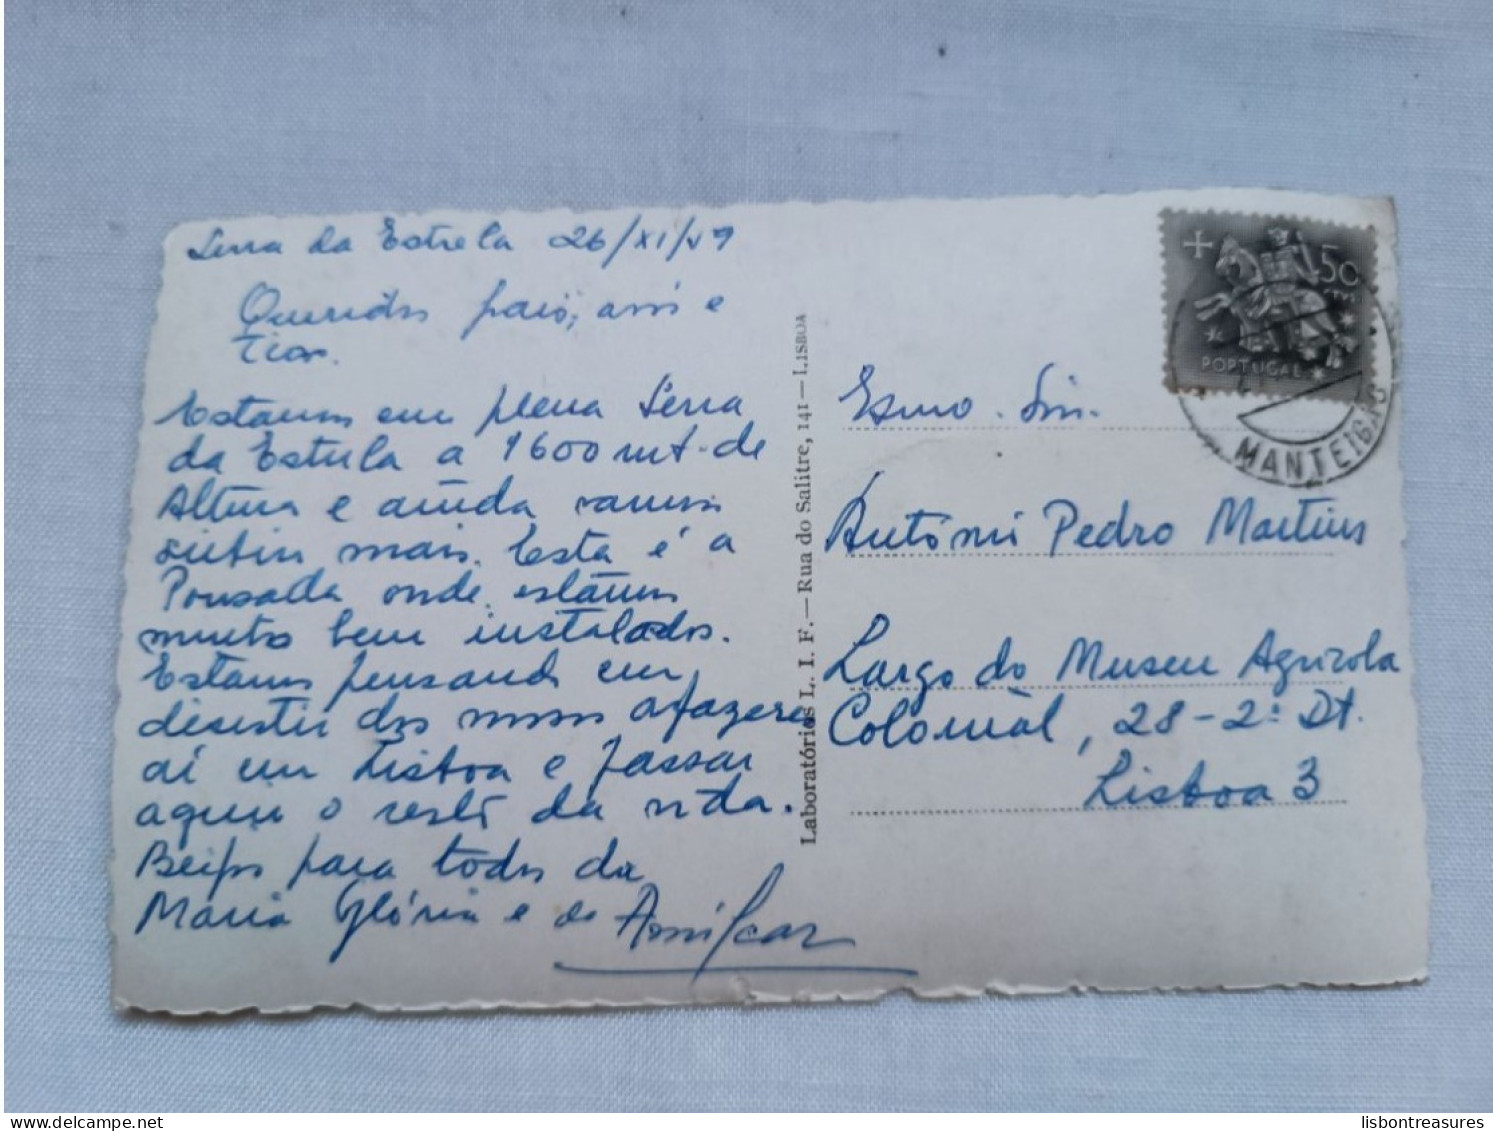 Serra da Estrela 26/XI/59
Queridos pais, avós e
Tias.
Estamos em plena Serra
da Estrela a 1600 mt. de
Altura e ainda vamos
subir mais. Esta é a
Pousada onde estamos
muito bem instalados.
Estamos pensando em
desistir dos nossos afazeres
aí em Lisboa e passar
aqui o resto da vida.
Beijos para todos da
Maria Glória e do Amilcar
Laboratórios L. I. F.—Rua do Salitre, 141—LISBOA
50
PORTUGAL
MANTEIGAS
Exmo. Snr.
António Pedro Martins
Largo do Museu Agrícola
Colonial, 28-2º Dt.
Lisboa 3
delcampe.net
lisbontreasures